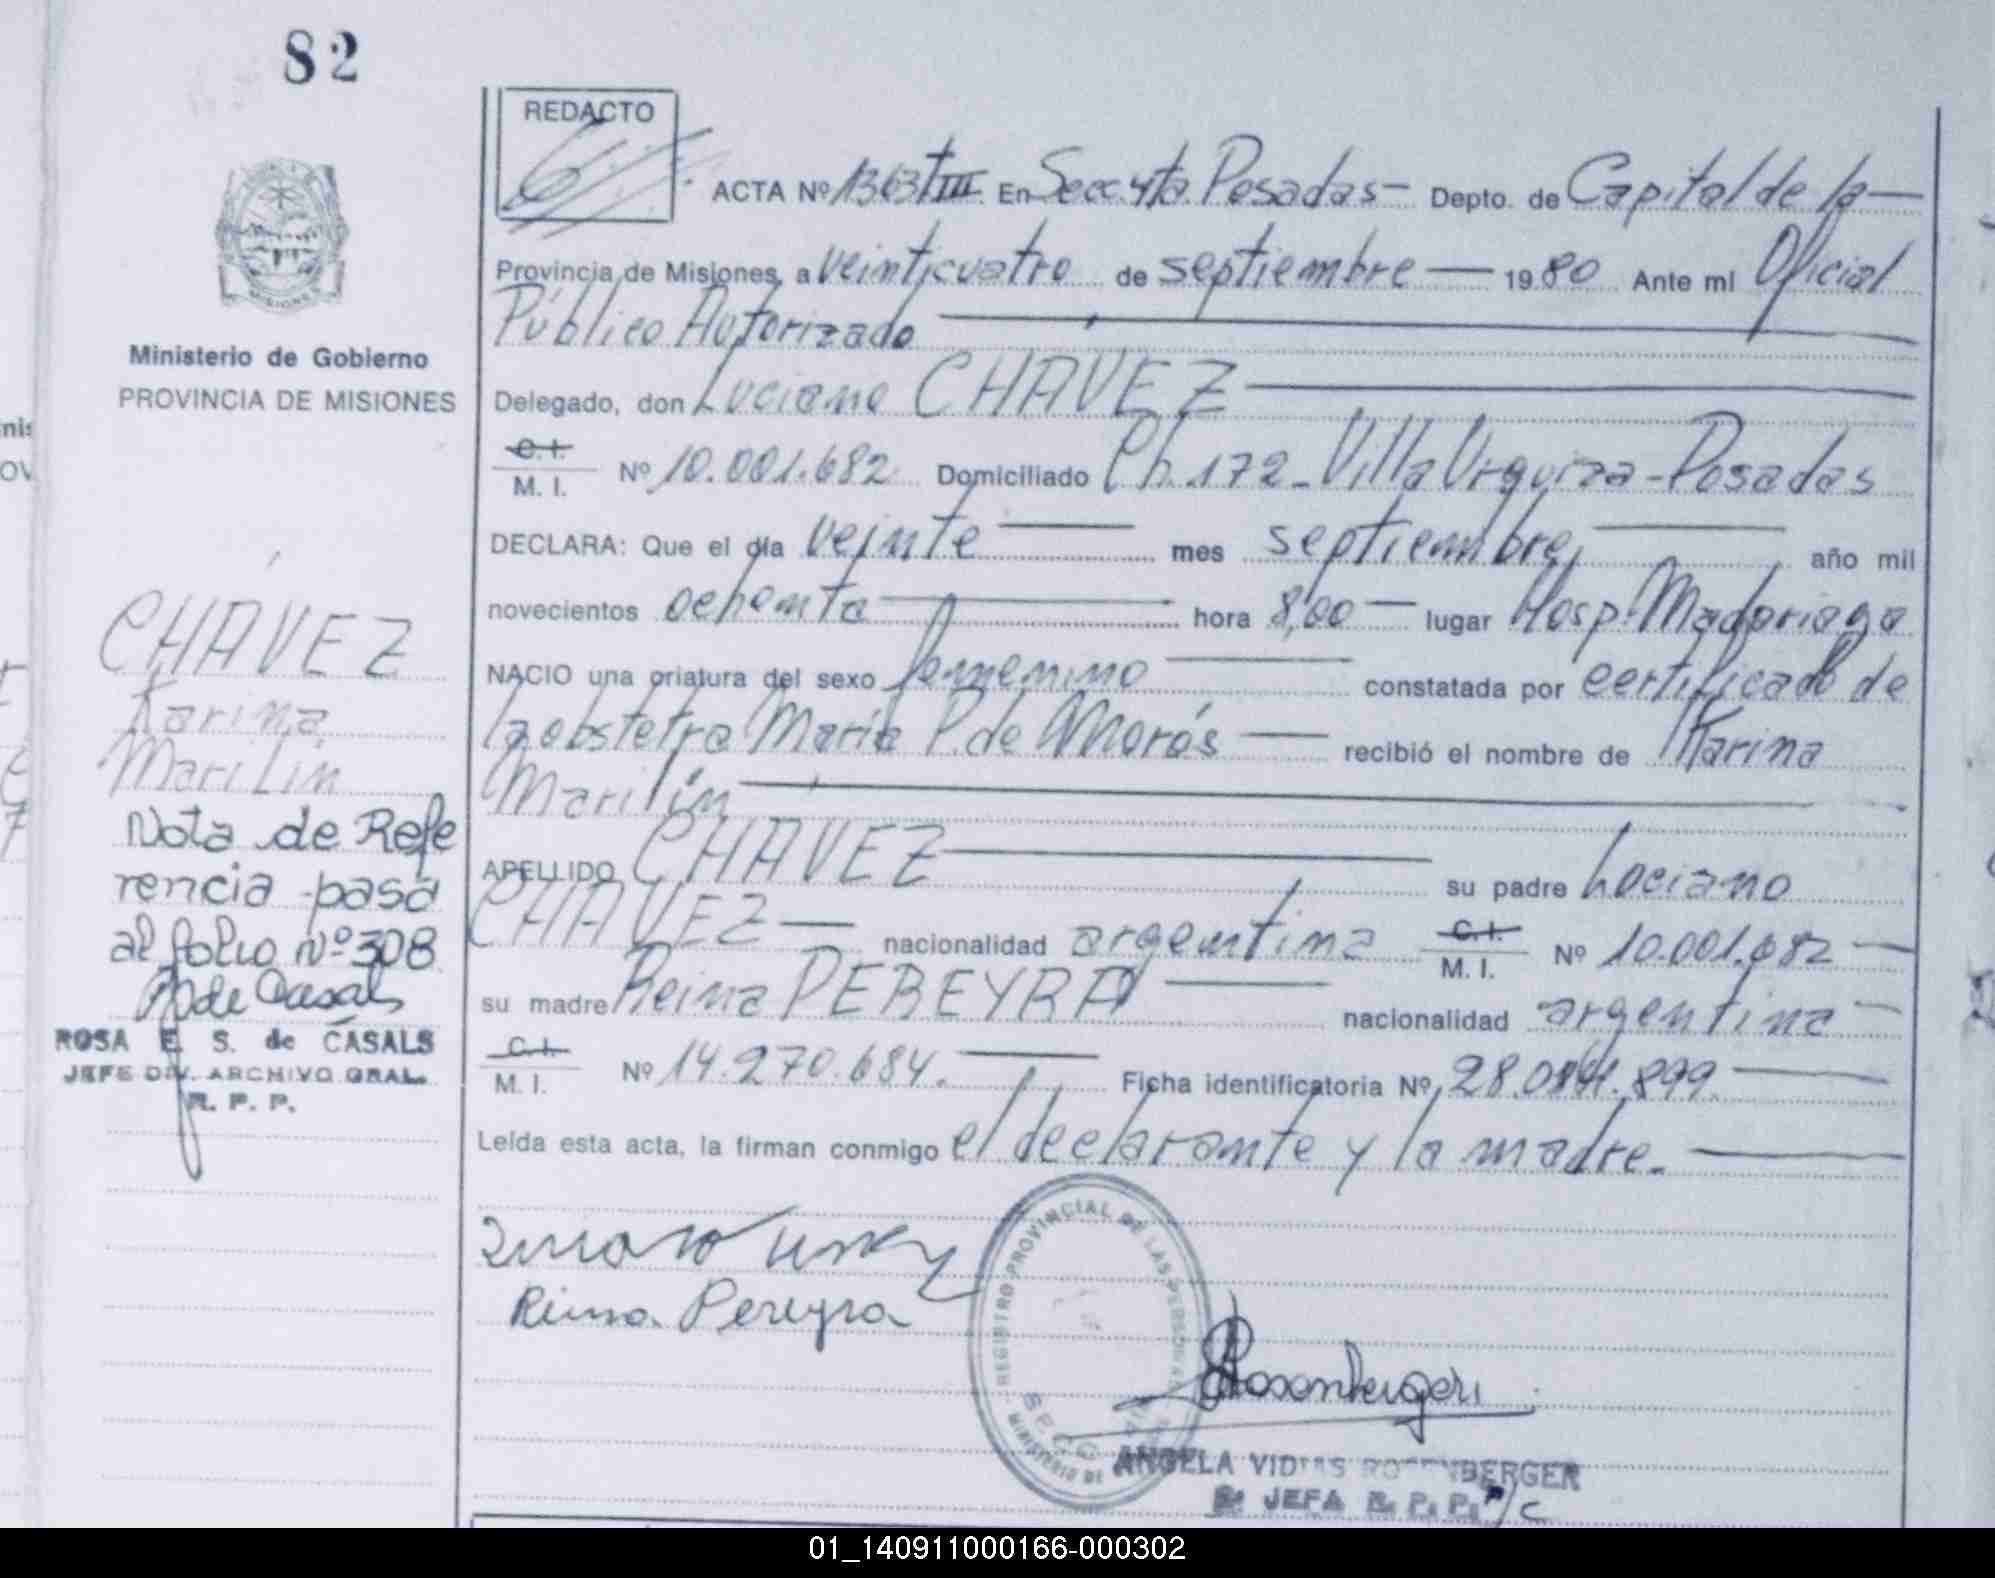 82
REDACTO
ACTA Nº 1363 T III En Secc. 4ta. Posadas - Depto. de Capital de la
Provincia de Misiones, a veinticuatro de septiembre 1980 Ante mí Oficial
Público Autorizado
Delegado, don Luciano CHAVEZ
C. I.
M. I. Nº 10.001.682 Domiciliado Ch. 172 - Villa Urquiza - Posadas
DECLARA: Que el día veinte mes septiembre, año mil
novecientos ochenta hora 8,00 lugar Hosp. Madariaga
NACIO una criatura del sexo femenino constatada por certificado de
la obstetra María P. de Morás recibió el nombre de Karina
Marilín
APELLIDO CHAVEZ su padre Luciano
CHAVEZ nacionalidad argentina C. I. M. I. Nº 10.001.682
su madre Reina PEREYRA nacionalidad argentina
C. I.
M. I. Nº 14.270.684. Ficha identificatoria Nº 28.084.899
Leída esta acta, la firman conmigo el declarante y la madre.
Reina Pereyra
REGISTRO PROVINCIAL DE LAS PERSONAS
SECC.
MINISTERIO DE
Rosenberger
ANGELA VIDAS ROSENBERGER
JEFA R. P. P. A/C
MISIONES
Ministerio de Gobierno
PROVINCIA DE MISIONES
CHAVEZ
Karina
Marilín
Nota de Refe
rencia pasa
al folio Nº 308
R de Casals
ROSA E. S. de CASALS
JEFE DIV. ARCHIVO GRAL.
R. P. P.
01_140911000166-000302